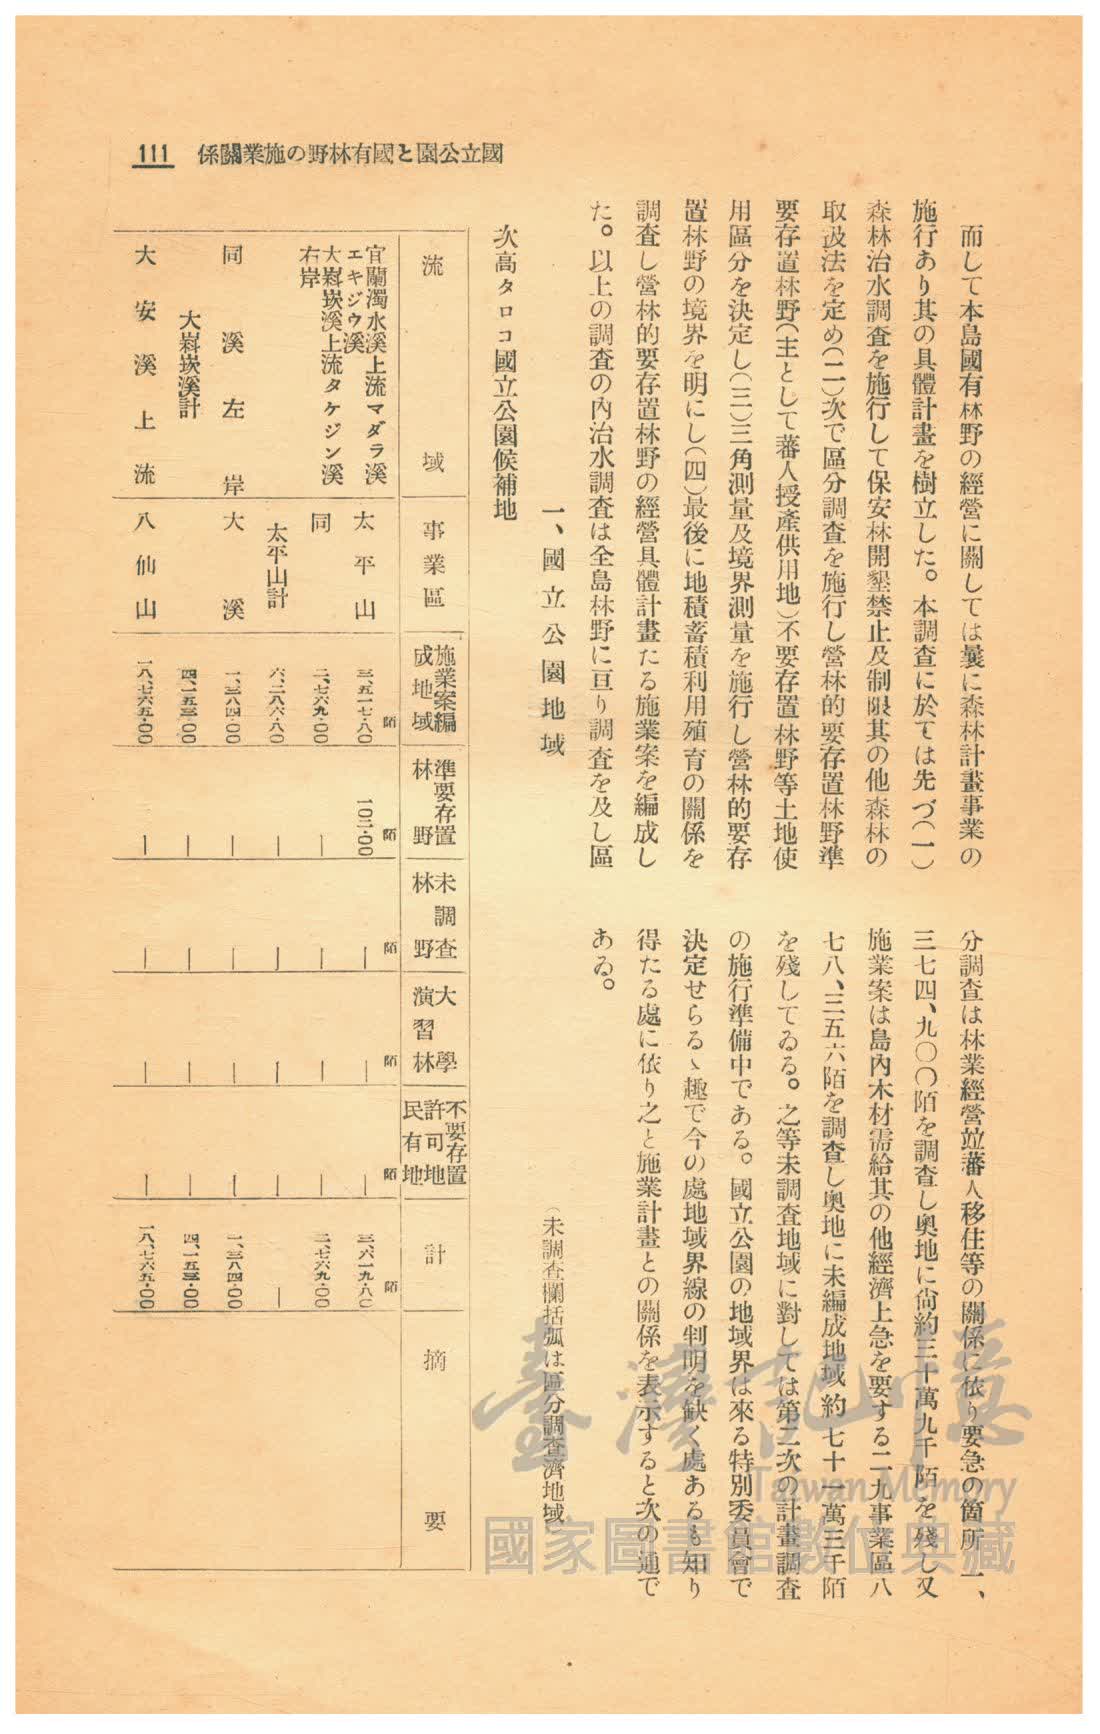 國立公園と國有林野の施業關係
111
而して本島國有林野の經營に關しては曩に森林計畫事業の
施行あり其の具體計畫を樹立した。本調査に於ては先づ(一)
森林治水調査を施行して保安林開墾禁止及制限其の他森林の
取扱法を定め(二)次で區分調査を施行し營林的要存置林野準
要存置林野(主として蕃人授產供用地)不要存置林野等土地使
用區分を決定し(三)三角測量及境界測量を施行し營林的要存
置林野の境界を明にし(四)最後に地積蓄積利用殖育の關係を
調査し營林的要存置林野の經營具體計畫たる施業案を編成し
た。以上の調査の內治水調査は全島林野に亘り調査を及し區
分調査は林業經營竝蕃人移住等の關係に依り要急の箇所一、
三七四、九〇〇陌を調査し奧地に尙約三十萬九千陌を殘し又
施業案は島內木材需給其の他經濟上急を要する二九事業區八
七八、三五六陌を調査し奧地に未編成地域約七十一萬三千陌
を殘してゐる。之等未調査地域に對しては第二次の計畫調査
の施行準備中である。國立公園の地域界は來る特別委員會で
決定せらるゝ趣で今の處地域界線の判明を缺く處あるも知り
得たる處に依り之と施業計畫との關係を表示すると次の通で
ある。
一、國立公園地域
(未調査欄括弧は區分調査濟地域)
次高タロコ國立公園候補地
流域
事業區
施業案編成地域
準要存置林野
未調査林野
大學演習林
不要存置許可地民有地
計
摘要
宜蘭濁水溪上流マダラ溪エキジウ溪 太平山 三、五一七・八〇陌 一〇二・〇〇陌 ―陌 ―陌 ―陌 三、六一九・八〇陌
大嵙崁溪上流タケジン溪右岸 同 二、七六九・〇〇 ― ― ― ― 二、七六九・〇〇
太平山計 六、二八六・八〇 ― ― ― ― ―
同溪左岸 大溪 一、三八四・〇〇 ― ― ― ― 一、三八四・〇〇
大嵙崁溪計 四、一五三・〇〇 ― ― ― ― 四、一五三・〇〇
大安溪上流 八仙山 一八、七六五・〇〇 ― ― ― ― 一八、七六五・〇〇
臺灣記憶
Taiwan Memory
國家圖書館數位典藏